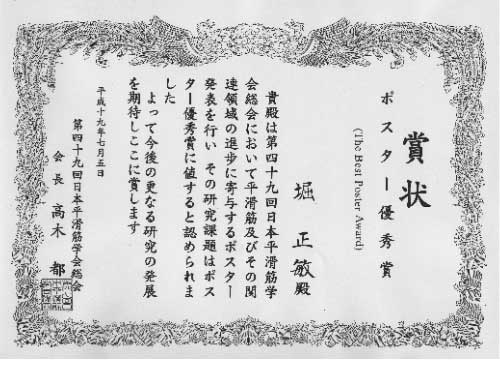 賞状
ポスター優秀賞
(The Best Poster Award)
堀 正敏殿
貴殿は第四十九回日本平滑筋学
会総会において平滑筋及びその関
連領域の進歩に寄与するポスター
発表を行い その研究課題はポス
ター優秀賞に値すると認められま
した
よって今後の更なる研究の発展
を期待しここに賞します
平成十九年七月五日
第四十九回日本平滑筋学会総会
会長 高木 都